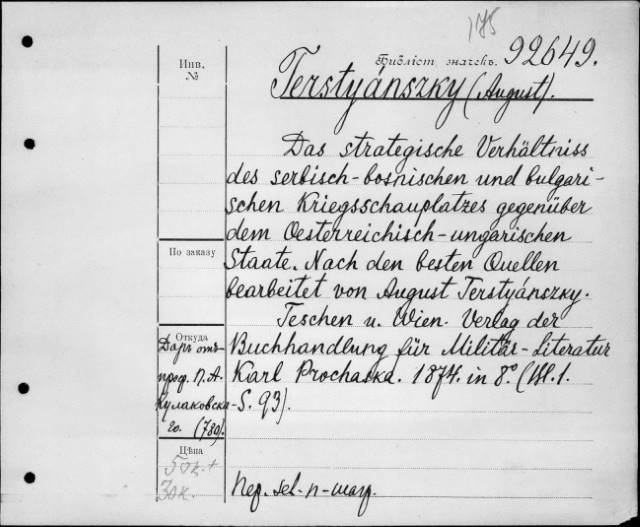 175
Библіот. значекъ. 92649.
Инв.
№
Terstyánszky (August).
Das strategische Verhältniss
des serbisch-bosnischen und bulgari-
schen Kriegsschauplatzes gegenüber
dem Oesterreichisch-ungarischen
По заказу
Staate. Nach den besten Quellen
bearbeitet von August Terstyánszky.
Teschen u. Wien. Verlag der
Откуда
Даръ отъ
проф. П. А.
Кулаковска-
го. (789).
Buchhandlung für Militär-Literatur
Karl Prochaska. 1874. in 8° (Bl. 1.
S. 93).
Цѣна
50к.+
30к.
Пер.